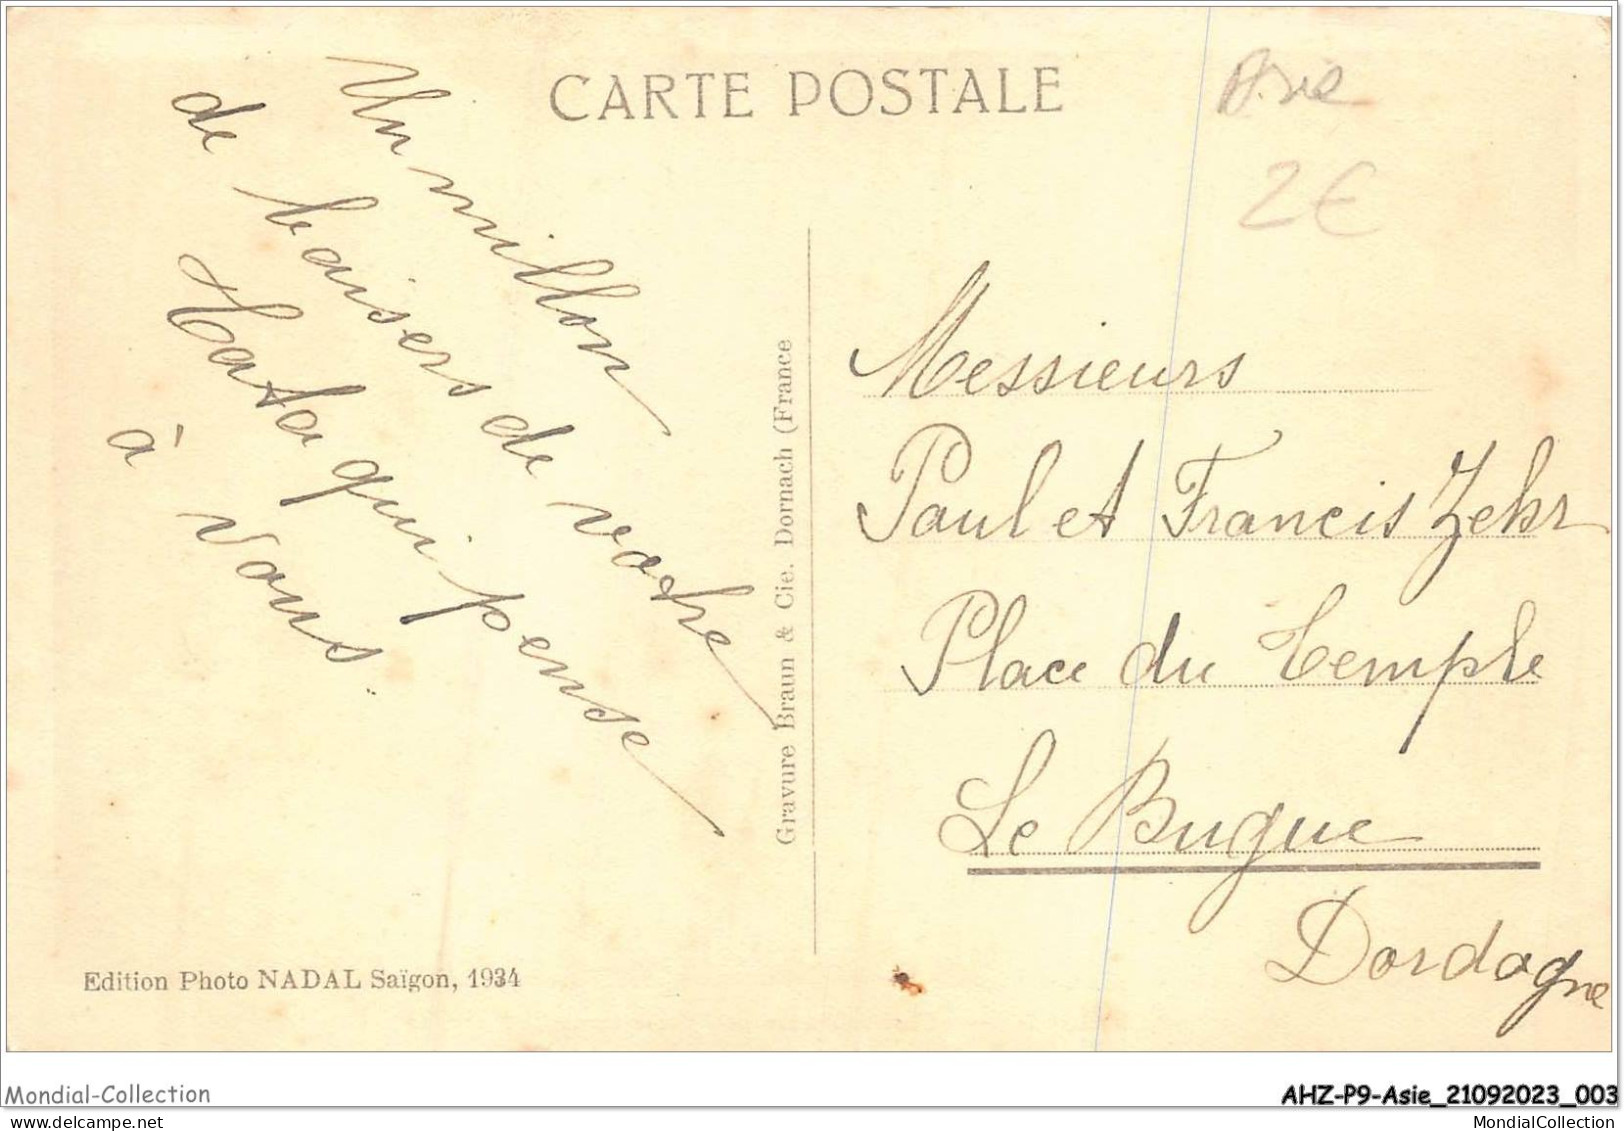 CARTE POSTALE
2€
Un millon
de baisers de votre
Tata qui pense
à vous.
Gravure Braun & Cie. Dornach (France
Messieurs
Paul et Francis Zehr
Place du Temple
Le Bugue
Dordogne
Edition Photo NADAL Saïgon, 1934
Mondial-Collection
AHZ-P9-Asie_21092023_003
MondialCollection
MondialCollection